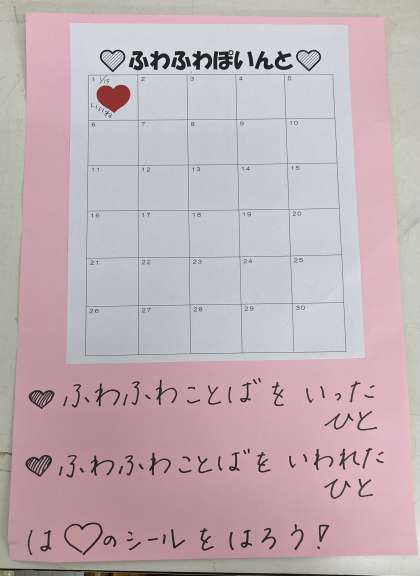 ♡ふわふわぽいんと♡
1 1/15 2 3 4 5
いいね
6 7 8 9 10
11 12 13 14 15
16 17 18 19 20
21 22 23 24 25
26 27 28 29 30
♡ふわふわことばを いった
ひと
♡ふわふわことばを いわれた
ひと
は♡のシールをはろう!